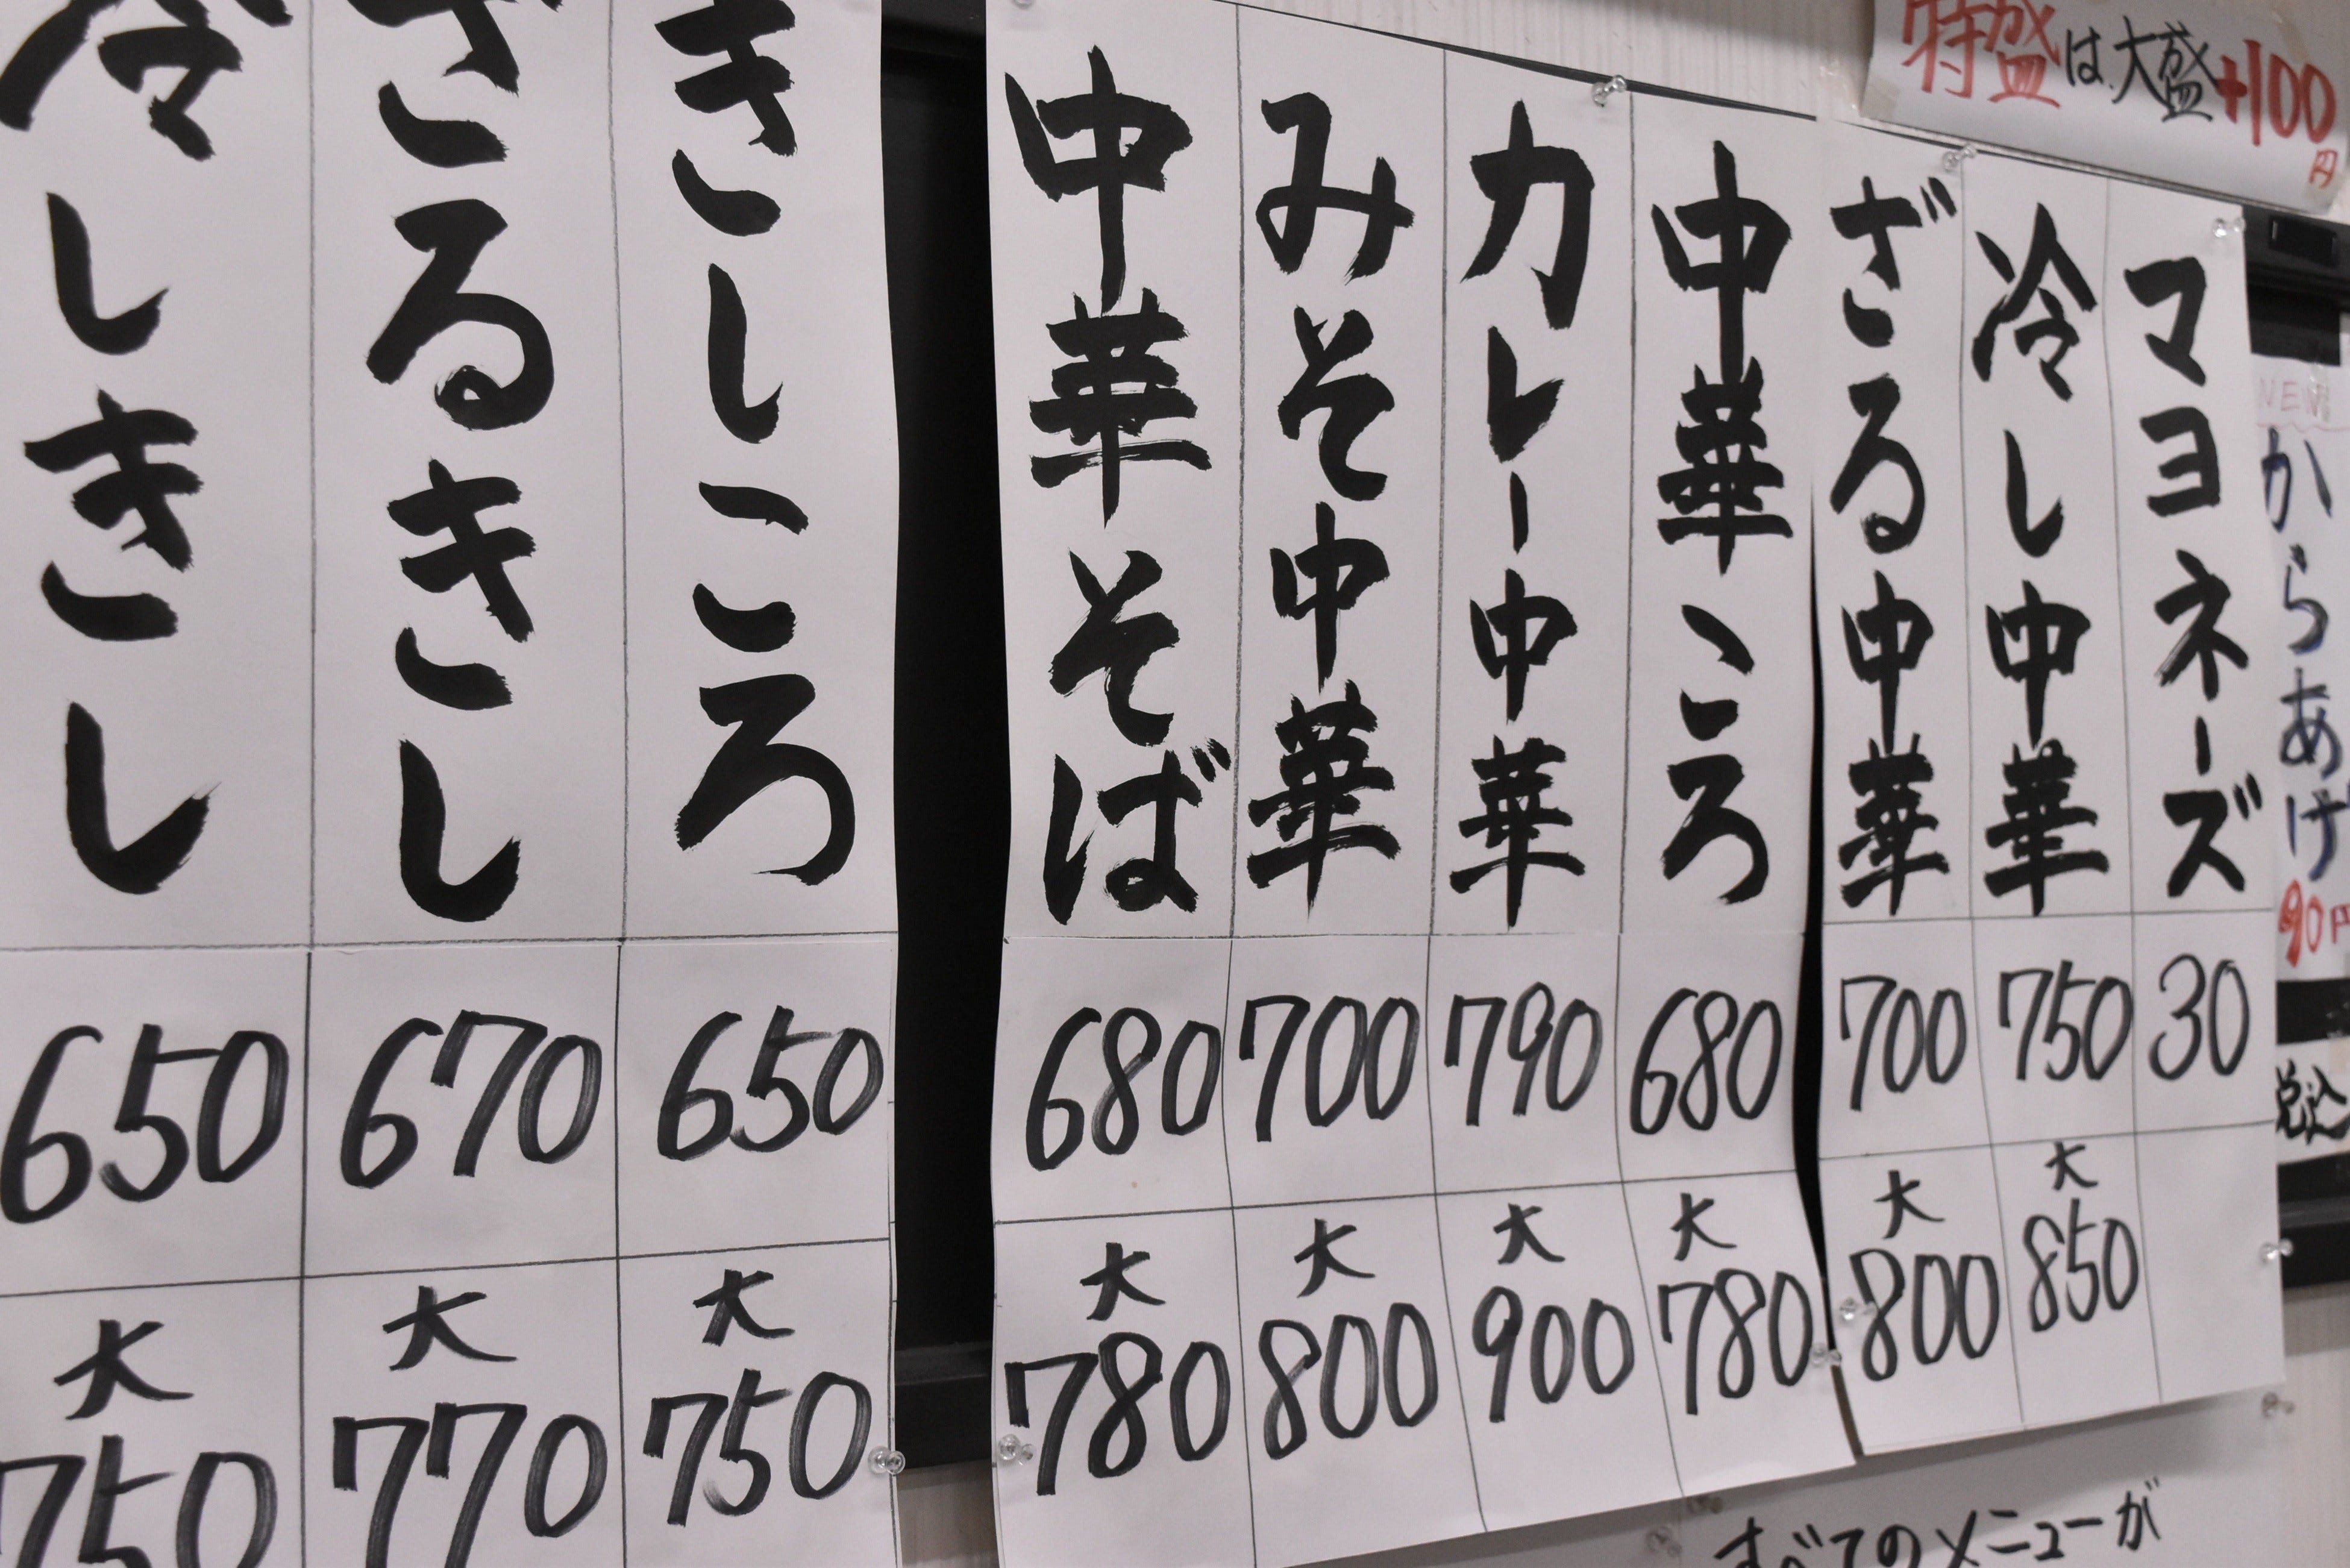 特盛は大盛+100円
NEW!
からあげ
90円
税込
マヨネーズ
30
冷し中華
750
大
850
ざる中華
700
大
800
中華ころ
680
大
780
カレー中華
790
大
900
みそ中華
700
大
800
中華そば
680
大
780
きしころ
650
大
750
ざるきし
670
大
770
冷しきし
650
大
750
すべてのメニューが